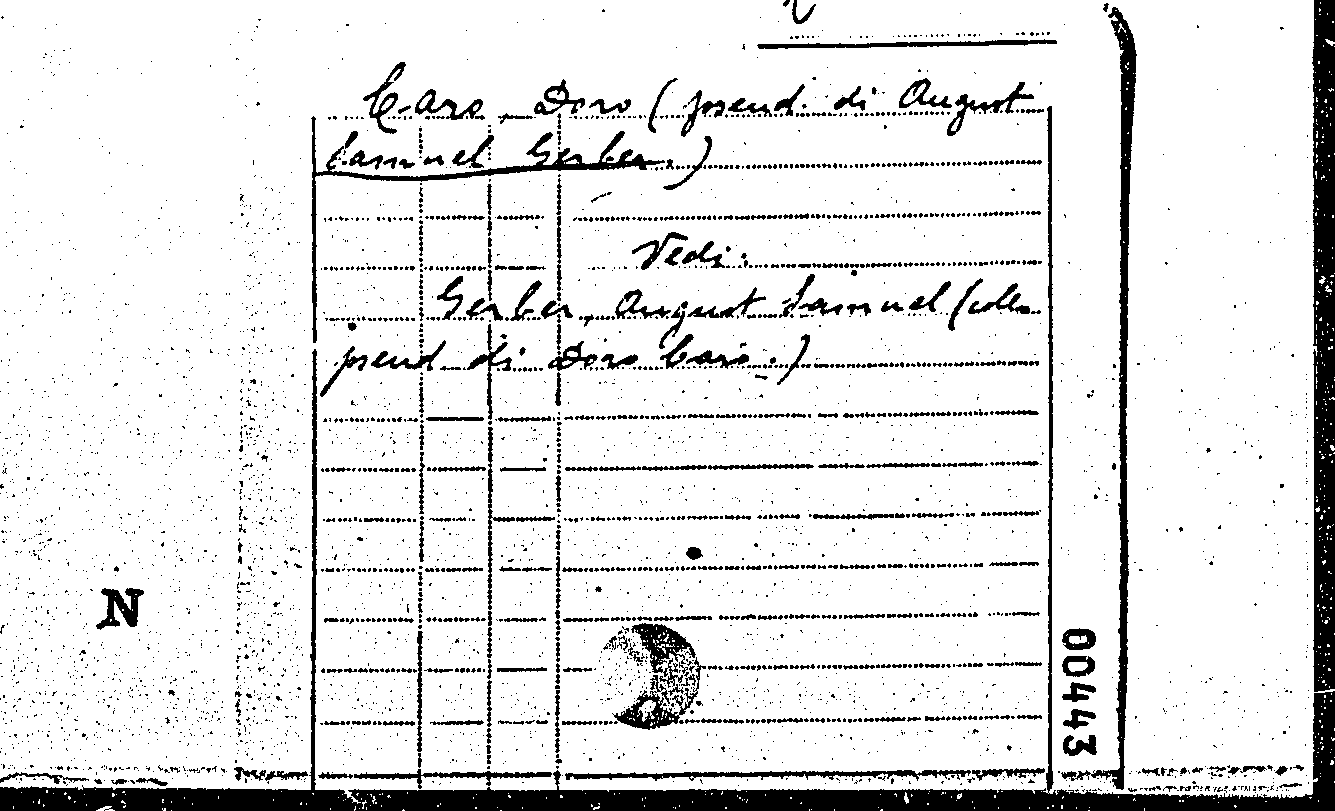 Caro, Doro (pseud. di August
Samuel Gerber.)
Vedi:
Gerber, August Samuel (collo
pseud di Doro Caro.)
N
00443